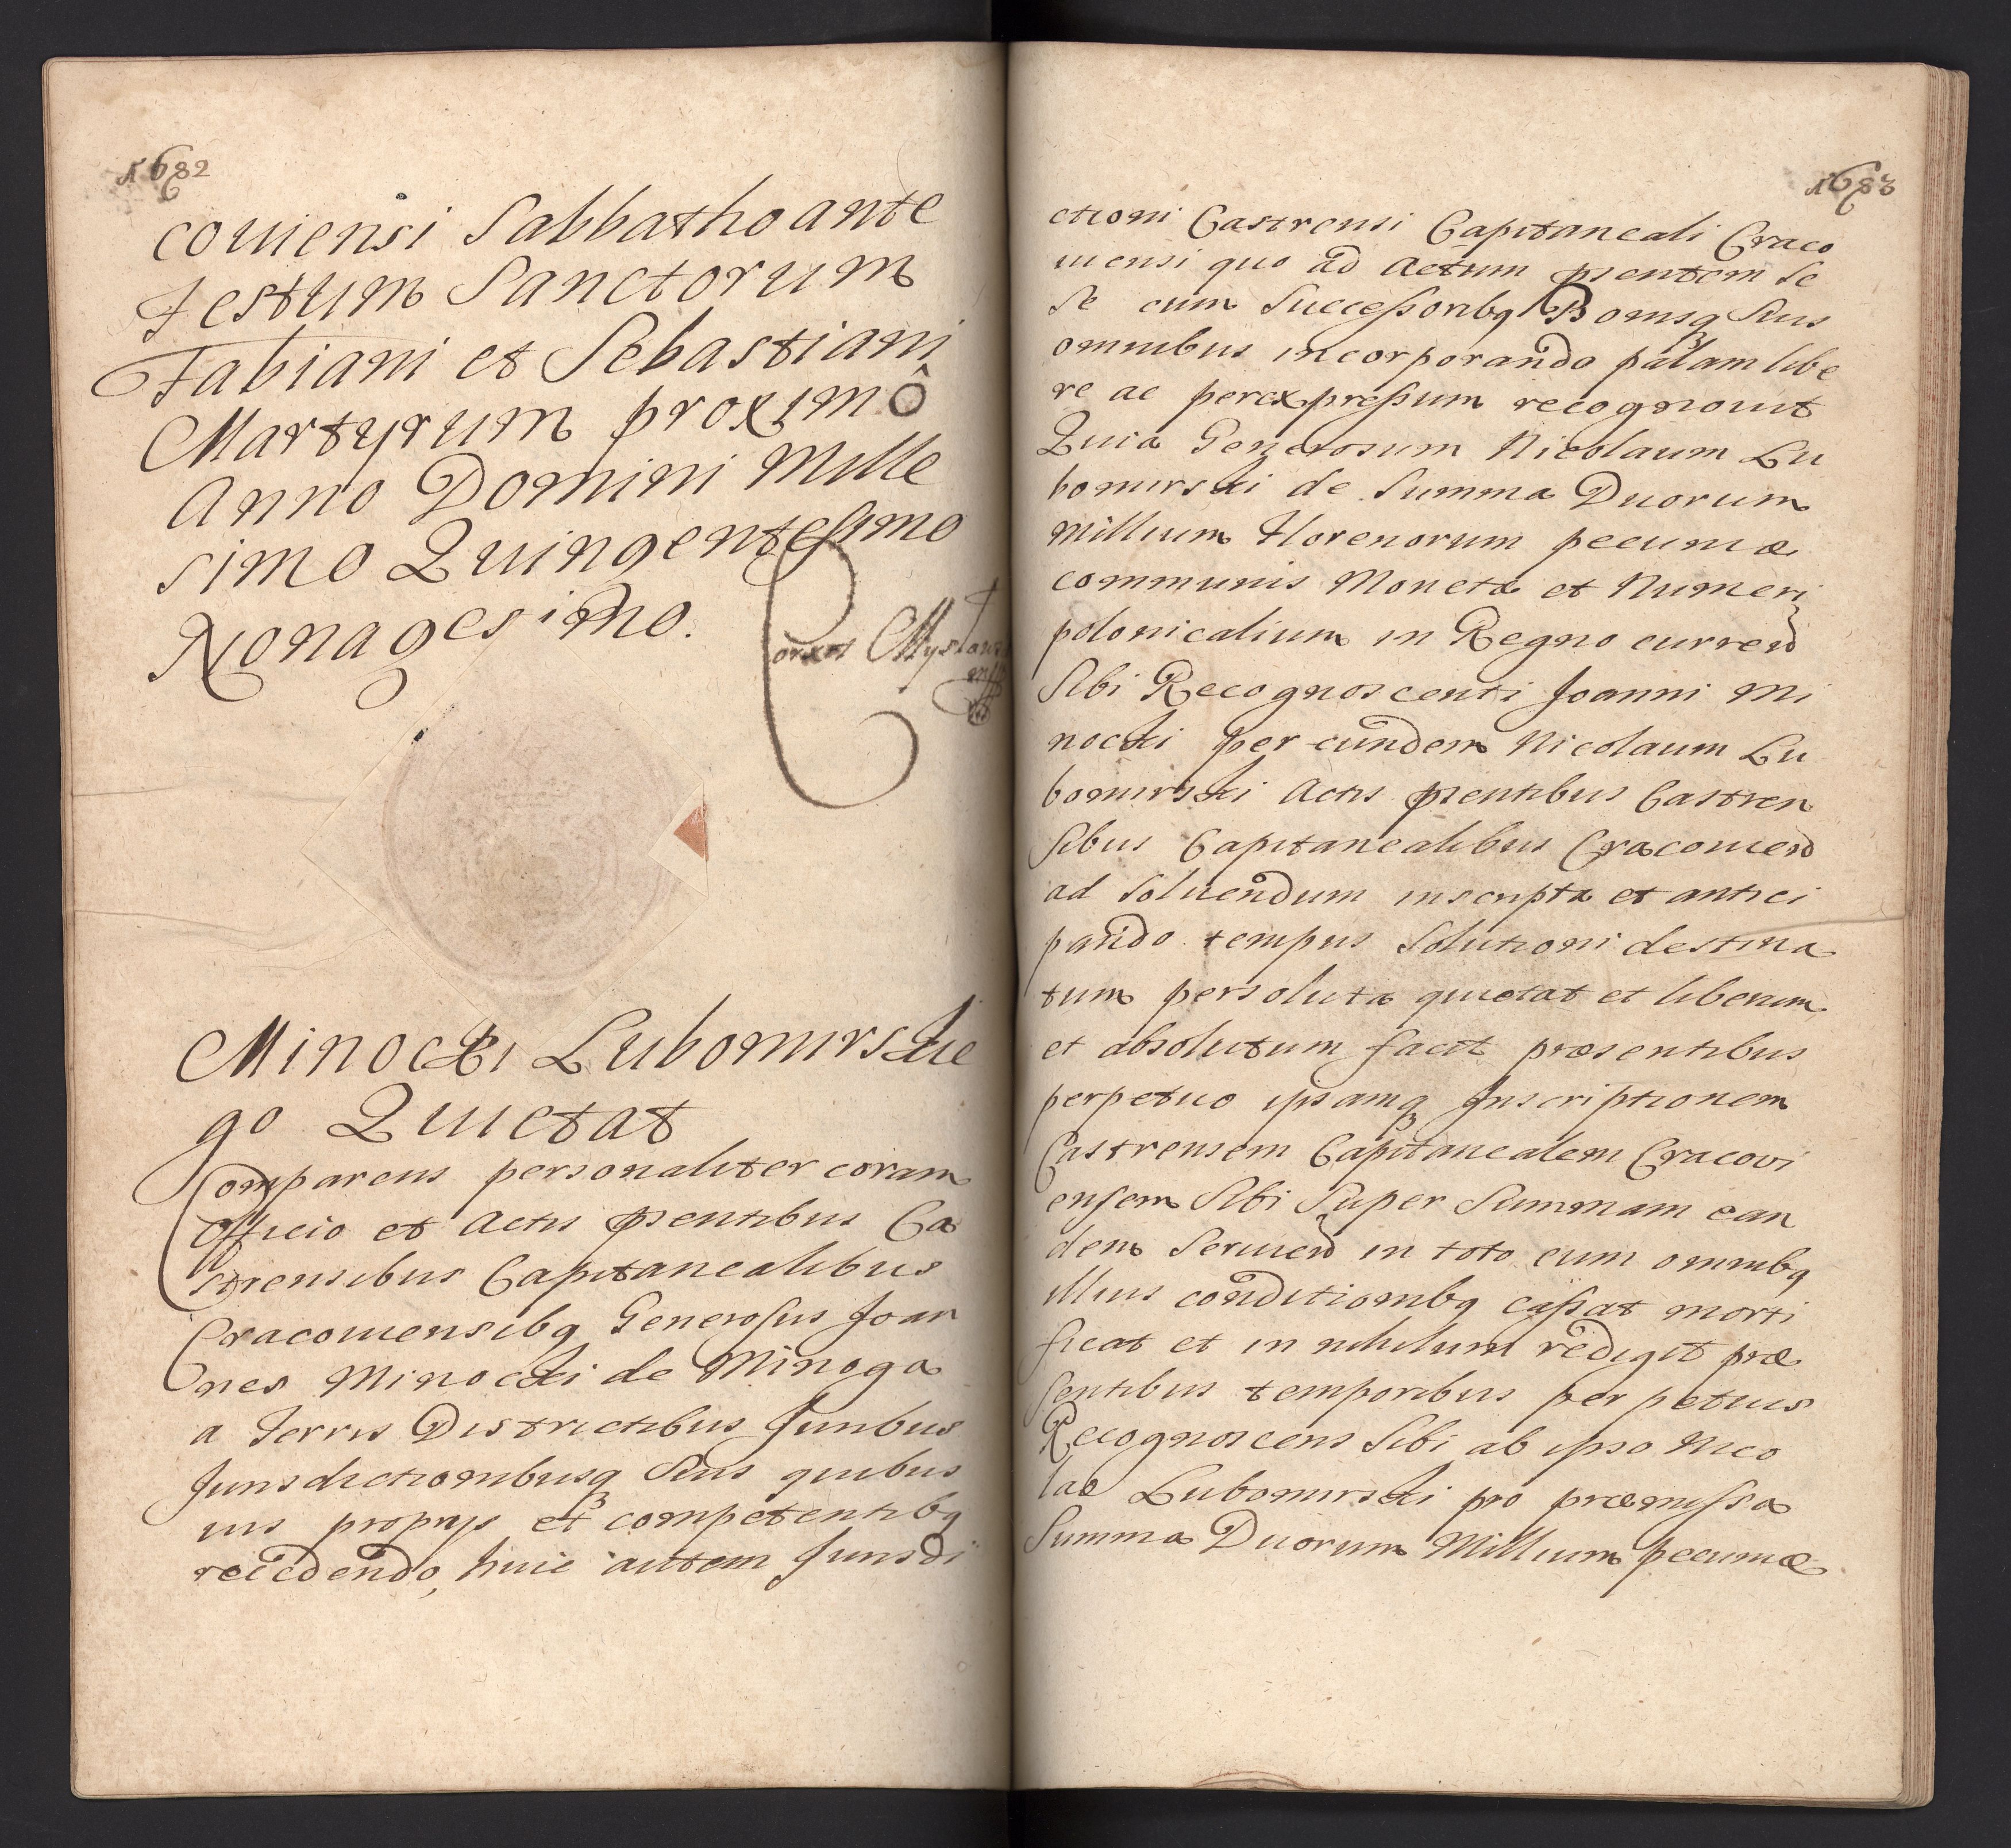 1682
coviensi Sabbatho ante
Festum Sanctorum
Fabiani et Sebastiani
Martyrum proximô
Anno Domini Mille
simo Quingentesimo
Nonagesimo.
Minocki Lubomirskie
go Quietat
Comparens personaliter coram
Officio et Actis psentibus Ca
strensibus Capitanealibus
Cracoviensibq Generosus Joan
nes Minocki de Minoga
a Terris Districtibus Juribus
Jurisdictionibusq suis quibus
vis proprijs et competentibq
recedendo, huic autem Jurisdi
1683
ctioni Castrensi Capitaneali Craco
viensi quo ad Actum psentem se
se cum Successoribq Bonisq suis
omnibus incorporando palam libe
re ac per expressum recognovit
Quia Generosum Nicolaum Lu
bomirski de Summa Duorum
Millium Florenorum pecuniæ
communis Monetæ et Numeri
polonicalium in Regno curren
Sibi Recognoscenti Joanni Mi
nocki per eundem Nicolaum Lu
bomirski Actis psentibus Castren
sibus Capitanealibus Cracovien
ad Solvendum inscripta et antici
pando tempus Solutioni destina
tum persoluta quietat et liberum
et absolutum facit præsentibus
perpetuo ipsamq Inscriptionem
Castrensem Capitanealem Cracovi
ensem Sibi Super Summam ean
dem Servien in toto cum omnibq
illius conditionibq cassat morti
ficat et in nihilum redigit præ
sentibus temporibus perpetuis
Recognoscens Sibi ab ipso Nico
lao Lubomirski pro præmissa
Summa Duorum Millium pecuniæ